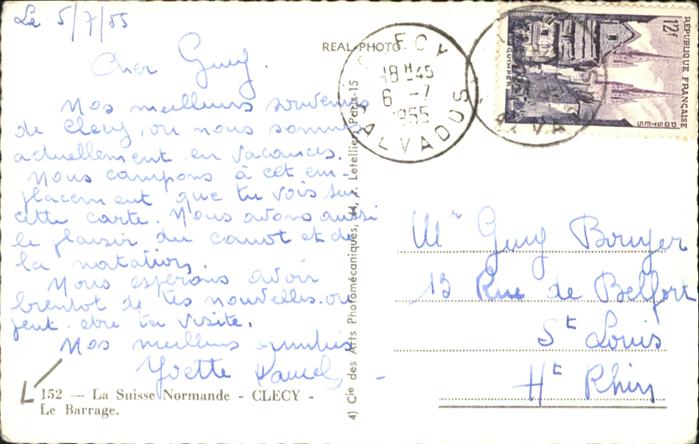 Le 5/7/55
Cher Guy.
Nos meilleurs souvenirs
de Clecy, ou nous sommes
actuellement en vacances.
Nous campons à cet em-
placement que tu vois sur
cette carte. Nous avons aussi
le plaisir du canot et de
la natation.
Nous espérons avoir
bientot de tes nouvelles ou
peut-etre ta visite.
Nos meilleurs
Yvette
152 — La Suisse Normande - CLECY -
Le Barrage.
REAL-PHOTO
4) Cie des Arts Photomécaniques, 44, r. Letellier, Paris-15
CLECY
18H45
6 -7
1955
CALVADOS
12f
REPUBLIQUE FRANÇAISE
POSTES
QUIMPER
Mr Guy Bouyer
13 Rue de Belfort
St Louis
Ht Rhin